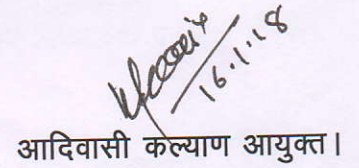 16.1.18
आदिवासी कल्याण आयुक्त।